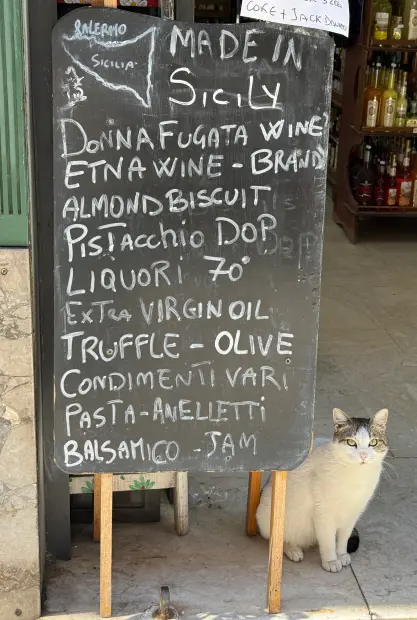 COKE + JACK DANIEL
PALERMO
SICILIA
MADE IN
SiCiLY
DONNAFUGATA WINE
ETNA WINE - BRAND
ALMOND BISCUIT
PiSTACCHiO DOP
LIQUORI 70°
EXTRA VIRGIN OIL
TRUFFLE - OLIVE
CONDIMENTi VARI
PASTA-ANELLETTi
BALSAMICO - JAM